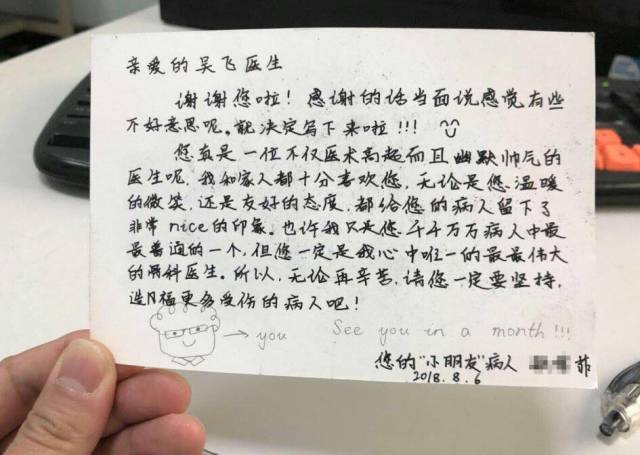 亲爱的吴飞医生
谢谢您啦！感谢的话当面说感觉有些
不好意思呢。就决定写下来啦!!!
您真是一位不仅医术高超而且幽默帅气的
医生呢，我和家人都十分喜欢您，无论是您温暖
的微笑，还是友好的态度，都给您的病人留下了
非常nice的印象。也许我只是您千千万万病人中最
最普通的一个，但您一定是我心中唯一的最最伟大
的骨科医生。所以，无论再辛苦，请您一定要坚持，
造福更多受伤的病人吧！
→ you See you in a month!!!
您的"小朋友"病人
2018.8.6